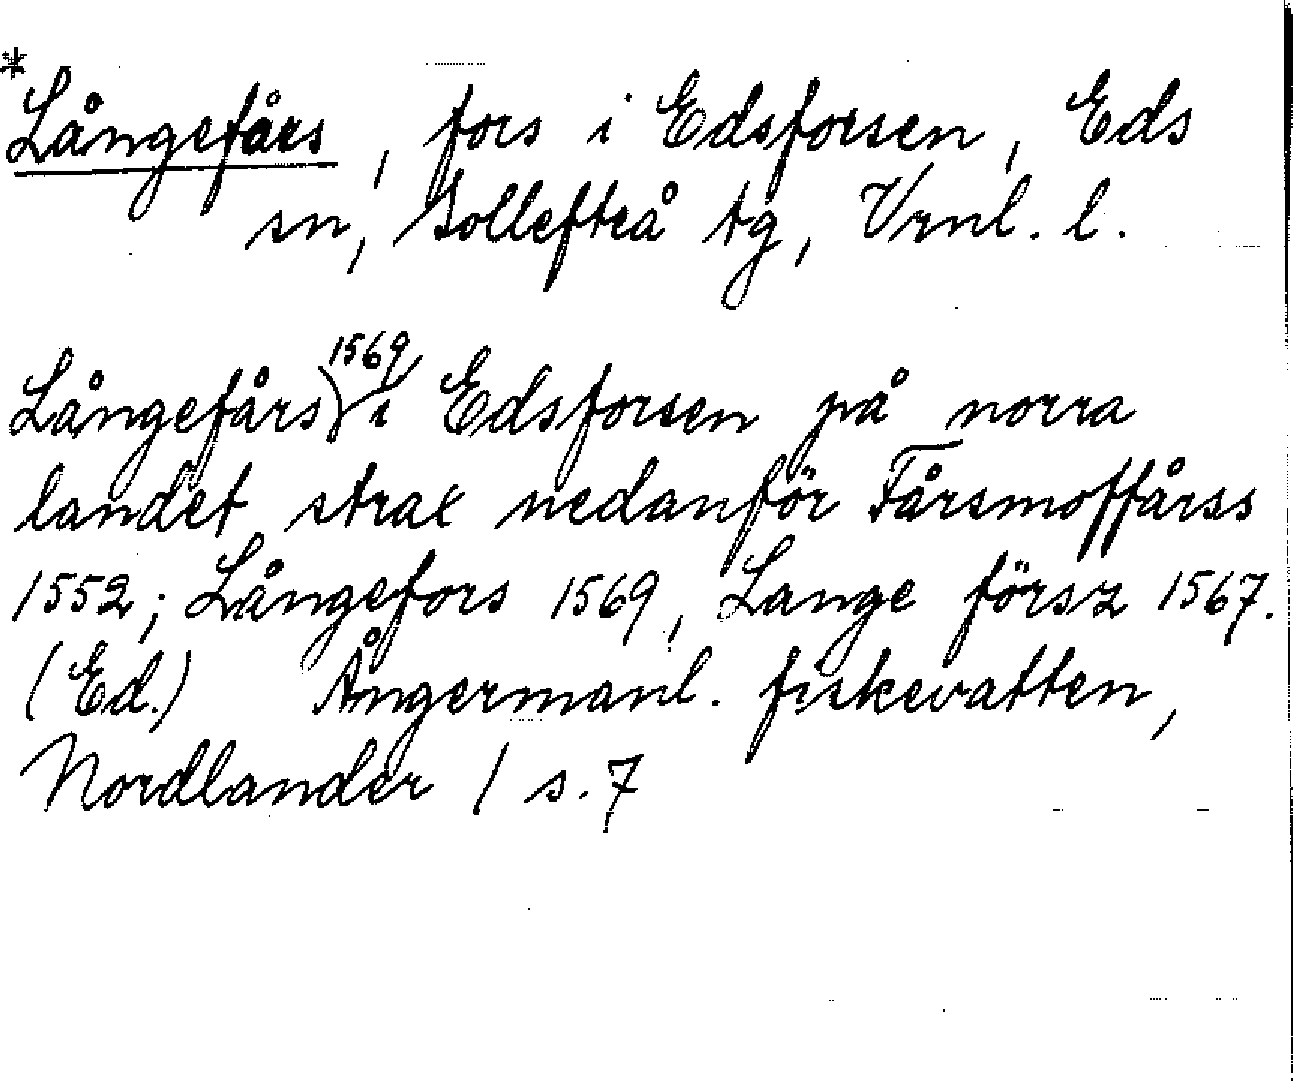 *Långefårs, fors i Edsforsen, Eds
sn, Sollefteå tg, Vrnl. l.
Långefårs) 1569 i Edsforsen på norra
landet strax nedanför Fårsmoffårss
1552; Långefors 1569, Lange försz 1567.
(Ed.) Ångermanl. fiskevatten,
Nordlander / s. 7